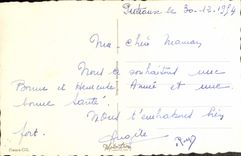 le 30-12-1954
Ma chère Maman
Nous te souhaitons une
Bonne et Heureuse Année et une
bonne santé.
Nous t'embrassons bien
fort.